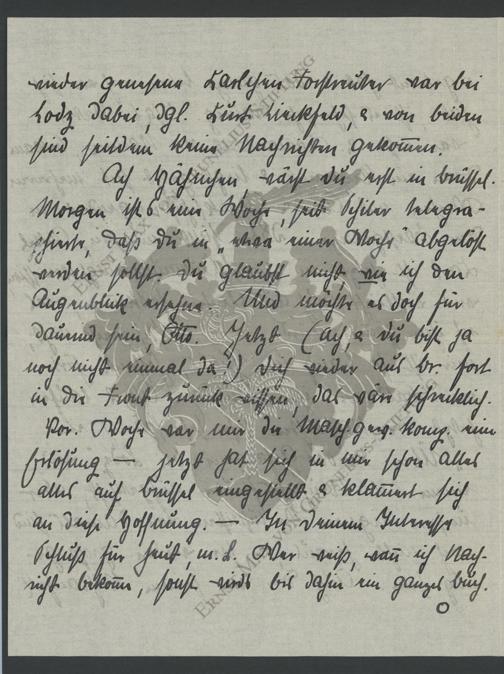 wieder genesene Karlchen Forstreuter war bei
Lodz dabei, dgl. Kurt Lieckfeld, & von beiden
sind seitdem keine Nachrichten gekom̄en.
Ach Hähnchen, wärst du erst in Brüssel.
Morgen ist's eine Woche, seit Schiler telegra-
phierte, daß du in "etwa einer Woche" abgelöst
werden sollst du glaubst nicht, wie ich den
Augenblick ersehne. Und möchte es doch für
dauernd sein, Otto. Jetzt (ach, & du bist ja
noch nicht einmal da!) dich wieder aus Br. fort
in die Front zurück wissen, das wäre schrecklich.
Vor. Woche war mir die Masch.gew. komp. eine
Erlösung — jetzt hat sich in mir schon alles
alles auf Brüssel eingestellt & klam̄ert sich
an diese Hoffnung. — In Deinem Interesse
Schluß für heut, m. L. Wer weiß, wan̄ ich Nach-
richt bekom̄e, sonst wirds bis dahin ein ganzes Buch.